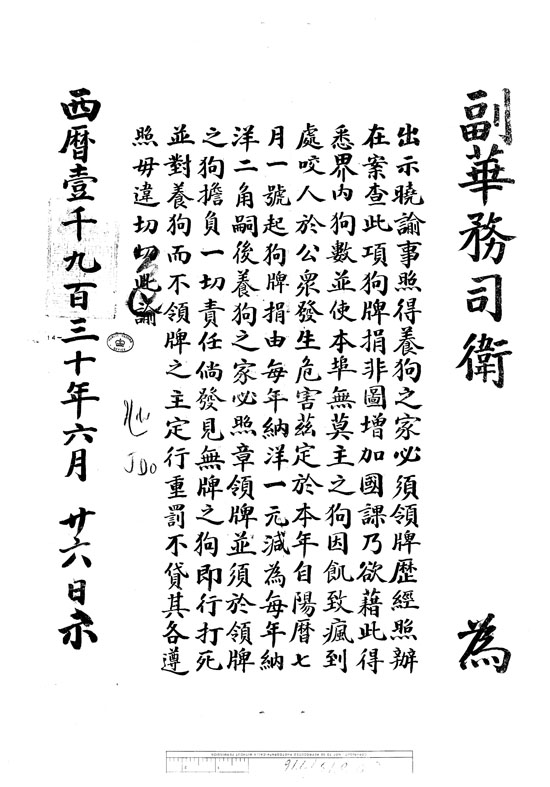 副華務司衛 為
出示曉諭事照得養狗之家必須領牌歷經照辦
在案查此項狗牌捐非圖增加國課乃欲藉此得
悉界內狗數並使本埠無莫主之狗因飢致瘋到
處咬人於公衆發生危害茲定於本年自陽曆七
月一號起狗牌捐由每年納洋一元減為每年納
洋二角嗣後養狗之家必照章領牌並須於領牌
之狗擔負一切責任倘發見無牌之狗即行打死
並對養狗而不領牌之主定行重罰不貸其各遵
照毋違切切此諭
西曆壹千九百三十年六月廿六日示